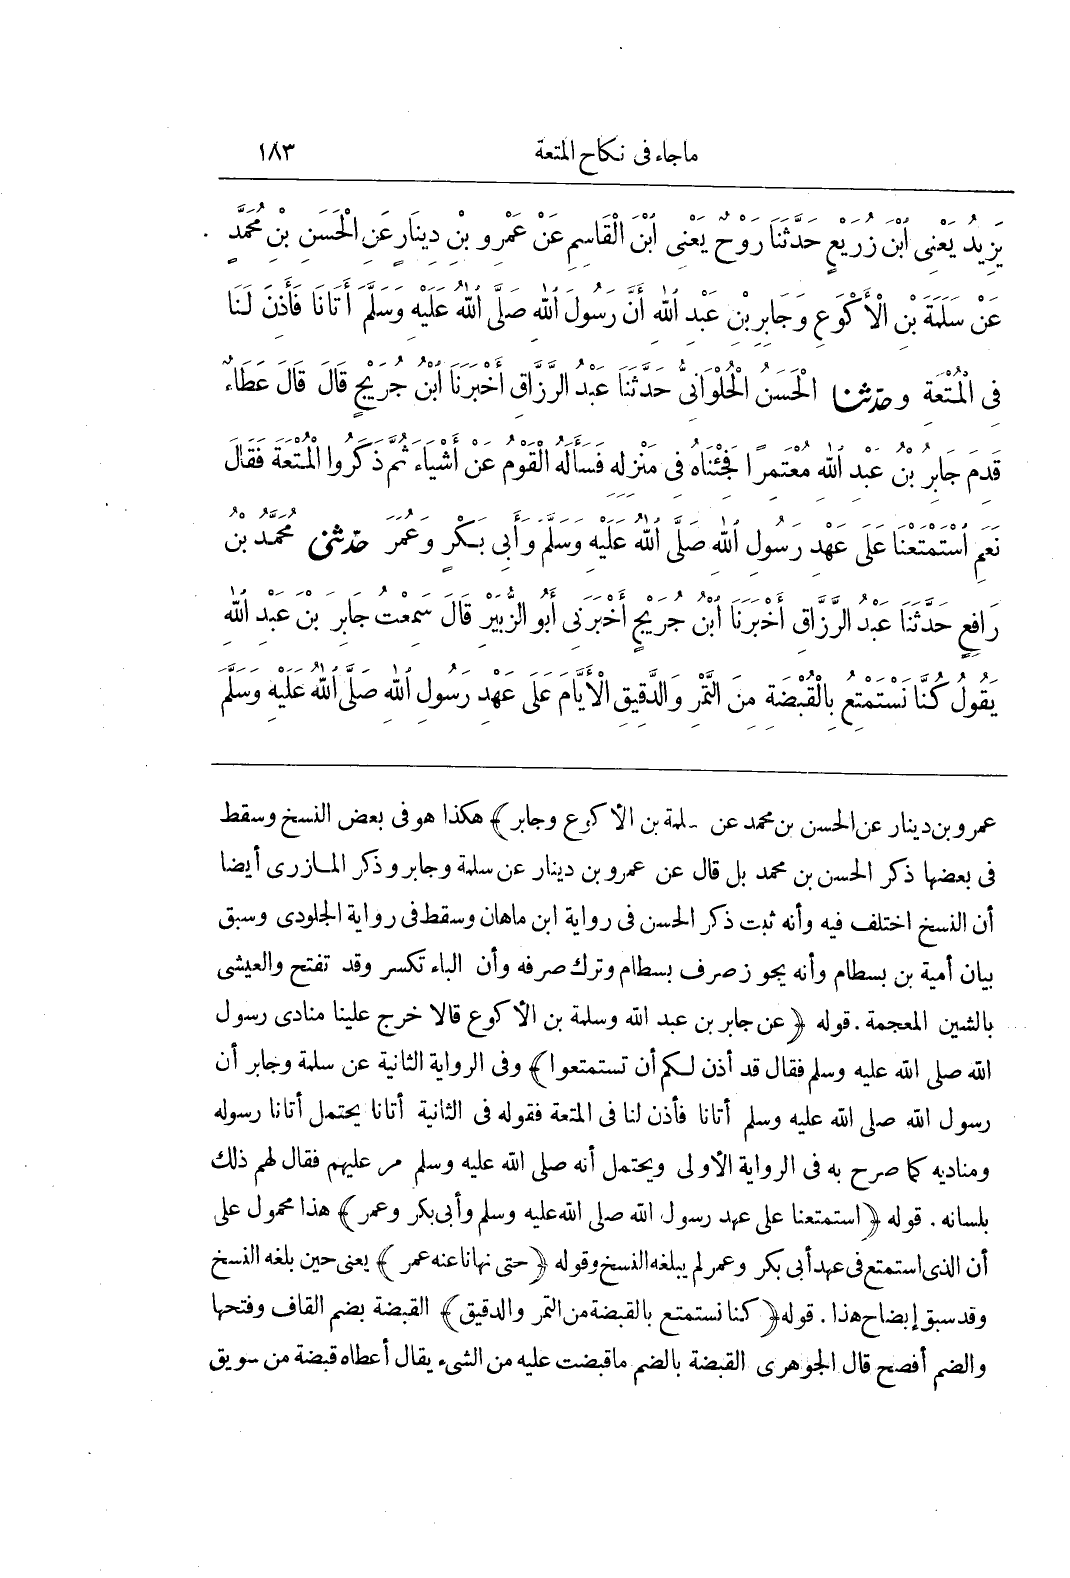 ماجاء فى نكاح المتعة ١٨٣
يَزِيدُ يَعْنِى ٱبْنَ زُرَيْعٍ حَدَّثَنَا رَوْحٌ يَعْنِى ٱبْنَ الْقَاسِمِ عَنْ عَمْرِو بْنِ دِينَارٍ عَنِ الْحَسَنِ بْنِ مُحَمَّدٍ
عَنْ سَلَمَةَ بْنِ الْأَكْوَعِ وَجَابِرِ بْنِ عَبْدِ ٱللهِ أَنَّ رَسُولَ ٱللهِ صَلَّى ٱللهُ عَلَيْهِ وَسَلَّمَ أَتَانَا فَأَذِنَ لَنَا
فِى الْمُتْعَةِ وحدّثنا الْحَسَنُ الْحُلْوَانِىُّ حَدَّثَنَا عَبْدُ الرَّزَّاقِ أَخْبَرَنَا ٱبْنُ جُرَيْجٍ قَالَ قَالَ عَطَاءٌ
قَدِمَ جَابِرُ بْنُ عَبْدِ ٱللهِ مُعْتَمِرًا فَجِئْنَاهُ فِى مَنْزِلِهِ فَسَأَلَهُ الْقَوْمُ عَنْ أَشْيَاءَ ثُمَّ ذَكَرُوا الْمُتْعَةَ فَقَالَ
نَعَمِ ٱسْتَمْتَعْنَا عَلَى عَهْدِ رَسُولِ ٱللهِ صَلَّى ٱللهُ عَلَيْهِ وَسَلَّمَ وَأَبِى بَكْرٍ وَعُمَرَ حدّثنى مُحَمَّدُ بْنُ
رَافِعٍ حَدَّثَنَا عَبْدُ الرَّزَّاقِ أَخْبَرَنَا ٱبْنُ جُرَيْجٍ أَخْبَرَنِى أَبُو الزُّبَيْرِ قَالَ سَمِعْتُ جَابِرَ بْنَ عَبْدِ ٱللهِ
يَقُولُ كُنَّا نَسْتَمْتِعُ بِالْقُبْضَةِ مِنَ التَّمْرِ وَالدَّقِيقِ الْأَيَّامَ عَلَى عَهْدِ رَسُولِ ٱللهِ صَلَّى ٱللهُ عَلَيْهِ وَسَلَّمَ
عمرو بن دينار عن الحسن بن محمد عن سلمة بن الأكوع وجابر﴾ هكذا هو فى بعض النسخ وسقط
فى بعضها ذكر الحسن بن محمد بل قال عن عمرو بن دينار عن سلمة وجابر وذكر المازرى أيضا
أن النسخ اختلف فيه وأنه ثبت ذكر الحسن فى رواية ابن ماهان وسقط فى رواية الجلودى وسبق
بيان أمية بن بسطام وأنه يجوز صرف بسطام وترك صرفه وأن الباء تكسر وقد تفتح والعيشى
بالشين المعجمة . قوله ﴿عن جابر بن عبد الله وسلمة بن الأكوع قالا خرج علينا منادى رسول
الله صلى الله عليه وسلم فقال قد أذن لكم أن تستمتعوا﴾ وفى الرواية الثانية عن سلمة وجابر أن
رسول الله صلى الله عليه وسلم أتانا فأذن لنا فى المتعة فقوله فى الثانية أتانا يحتمل أتانا رسوله
ومناديه كما صرح به فى الرواية الأولى ويحتمل أنه صلى الله عليه وسلم مر عليهم فقال لهم ذلك
بلسانه . قوله ﴿استمتعنا على عهد رسول الله صلى الله عليه وسلم وأبى بكر وعمر﴾ هذا محمول على
أن الذى استمتع فى عهد أبى بكر وعمر لم يبلغه النسخ وقوله ﴿حتى نهانا عنه عمر﴾ يعنى حين بلغه النسخ
وقد سبق إيضاح هذا . قوله ﴿كنا نستمتع بالقبضة من التمر والدقيق﴾ القبضة بضم القاف وفتحها
والضم أفصح قال الجوهرى القبضة بالضم ماقبضت عليه من الشىء يقال أعطاه قبضة من سويق